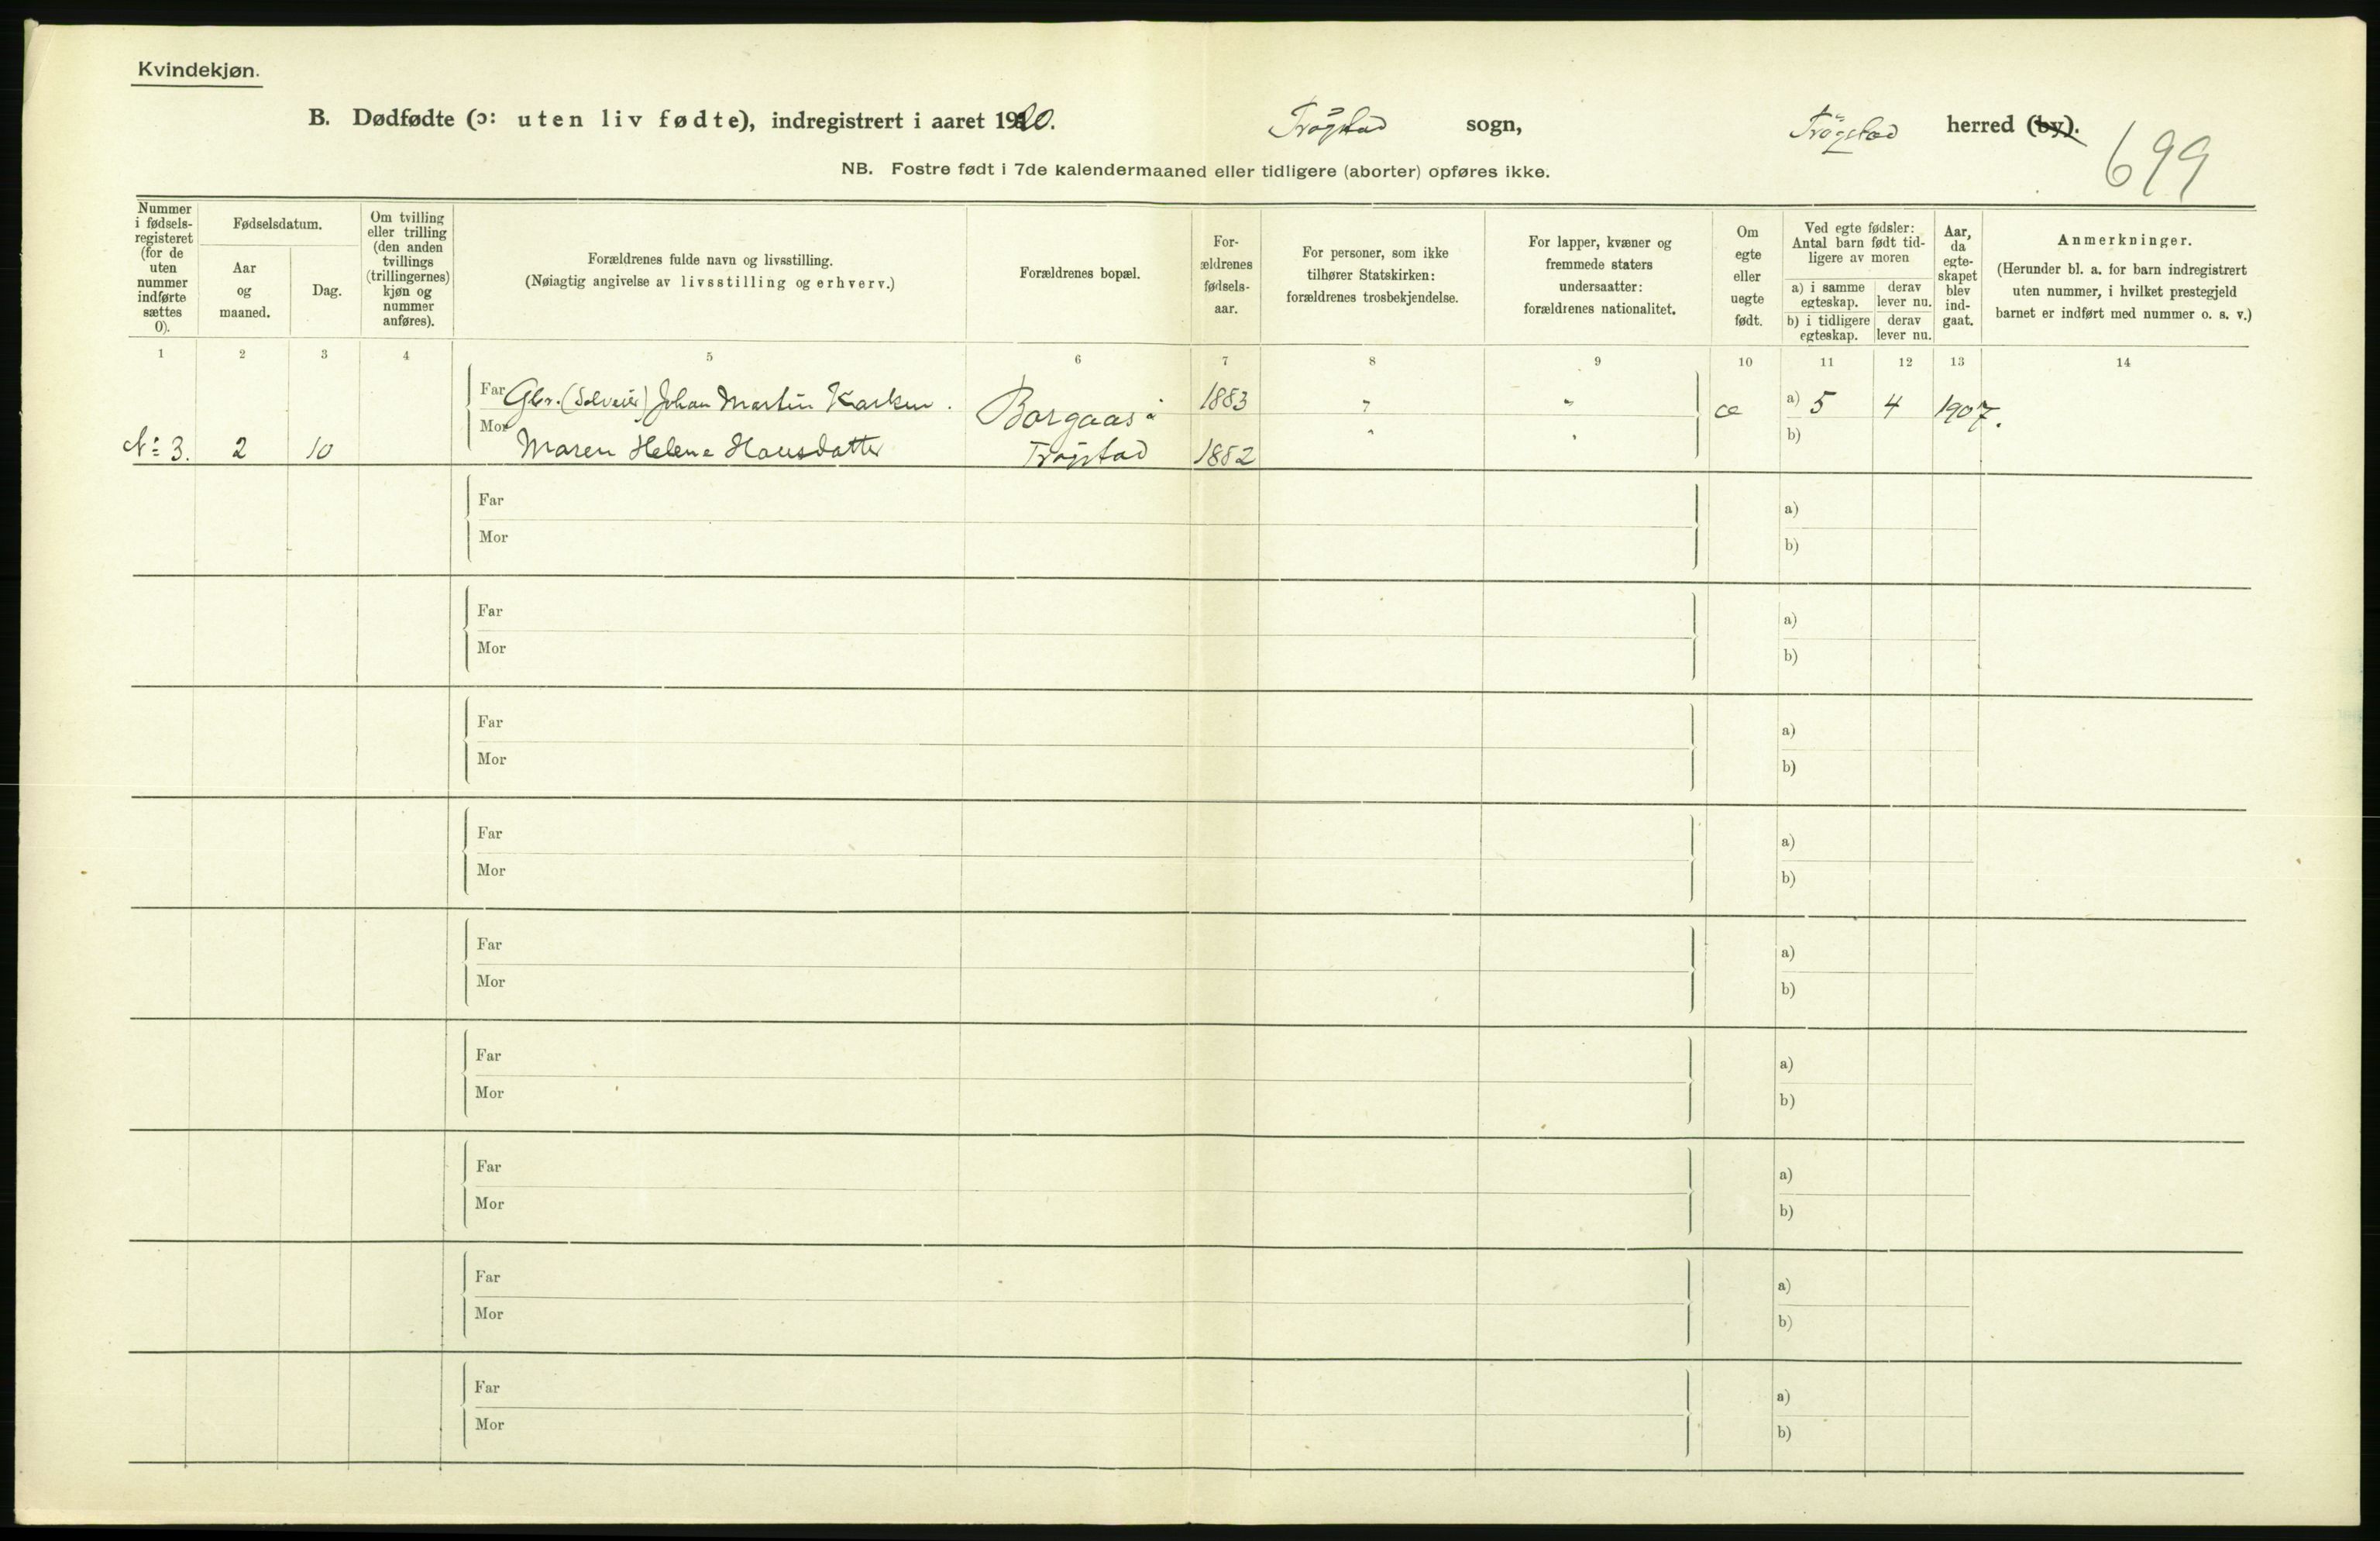 Kvindekjøn.
B. Dødfødte (ɔ: uten liv fødte), indregistrert i aaret 1920. Trögstad sogn, Trögstad herred (by).
699
NB. Fostre født i 7de kalendermaaned eller tidligere (aborter) opføres ikke.
Nummer i fødsels-registeret (for de uten nummer indførte sættes 0).
Fødselsdatum.
Aar og maaned.
Dag.
Om tvilling eller trilling (den anden tvillings (trillingernes) kjøn og nummer anføres).
Forældrenes fulde navn og livsstilling.
(Nøiagtig angivelse av livsstilling og erhverv.)
Forældrenes bopæl.
For-ældrenes fødsels-aar.
For personer, som ikke tilhører Statskirken: forældrenes trosbekjendelse.
For lapper, kvæner og fremmede staters undersaatter: forældrenes nationalitet.
Om egte eller uegte født.
Ved egte fødsler: Antal barn født tid-ligere av moren
a) i samme egteskap.
derav lever nu.
b) i tidligere egteskap.
derav lever nu.
Aar, da egte-skapet blev ind-gaat.
Anmerkninger.
(Herunder bl. a. for barn indregistrert uten nummer, i hvilket prestegjeld barnet er indført med nummer o. s. v.)
1 2 3 4 5 6 7 8 9 10 11 12 13 14
Far Gbr. (Selveier) Johan Martin Karlsen. Borgaas i 1883 " " a) 5 4 1907.
№ 3. 2 10 Mor Maren Helene Hansdatter Trögstad 1882 " " b)
Far a)
Mor b)
Far a)
Mor b)
Far a)
Mor b)
Far a)
Mor b)
Far a)
Mor b)
Far a)
Mor b)
Far a)
Mor b)
Far a)
Mor b)
Far a)
Mor b)